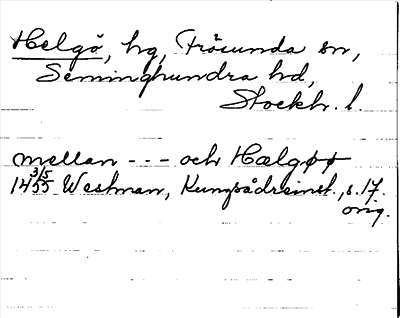 Helgö, hg, Frösunda sn,
Seminghundra hd,
Stockh. l.
mellan --- och Hælgøø
3/5
1455 Westman, Kungsådreinst., s. 17.
orig.